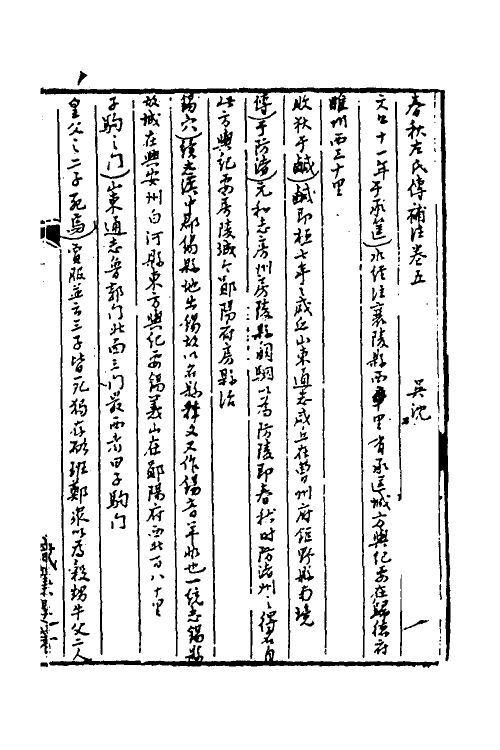 春秋左氏傳補注卷五 吳沈
文公十一年于承筐 水經注襄陵縣西里有承匡城方輿紀要在歸德府
睢州西三十里
敗狄于鹹 鹹即桓七年之咸丘山東通志咸丘在曹州府鉅野縣南境
傳 于防渚 元和志房州房陵縣闞駰以為防陵即春秋時防渚州之得名自
此方輿記要房陵城今鄖陽府房縣治
錫穴 續志漢中郡錫縣地出錫故以名縣釋文又作錫音羊水也一統志錫縣
故城在興安州白河縣東方輿紀要錫義山在鄖陽府西北百八十里
子駒之門 山東通志魯郭門北面三門最西者曰子駒門
皇父之二子死焉 賈服並云三子皆死獨存耏班鄭衆以爲穀甥牛父二人
一